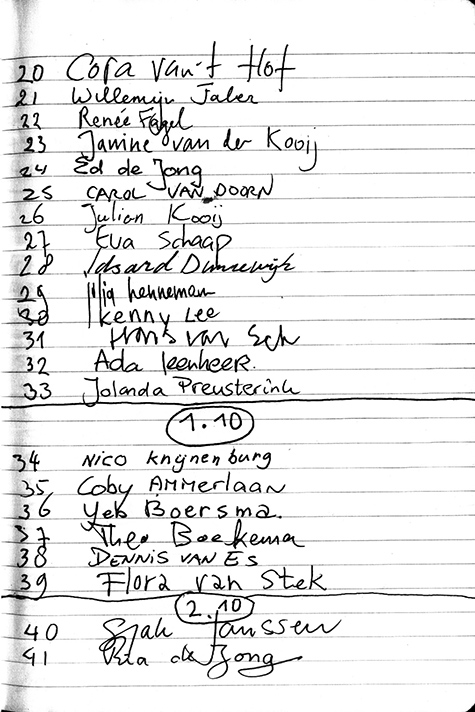 20 Cora van 't Hof
21 Willemijn Faber
22 Renée Fagel
23 Janine van der Kooij
24 Ed de Jong
25 CAROL VAN DOORN
26 Julian Kooij
27 Eva Schaap
28 Idsard
29 Ilja henneman
30 kenny Lee
31 Hans van Sch
32 Ada Leenheer.
33 Jolanda Preusterink
1.10
34 Nico Knijnenburg
35 Coby AMMerlaan
36 Yeb Boersma.
37 Theo Boekema
38 DENNIS VAN ES
39 Flora van Stek
2.10
40 Sjak Janssen
41 Ria de Jong